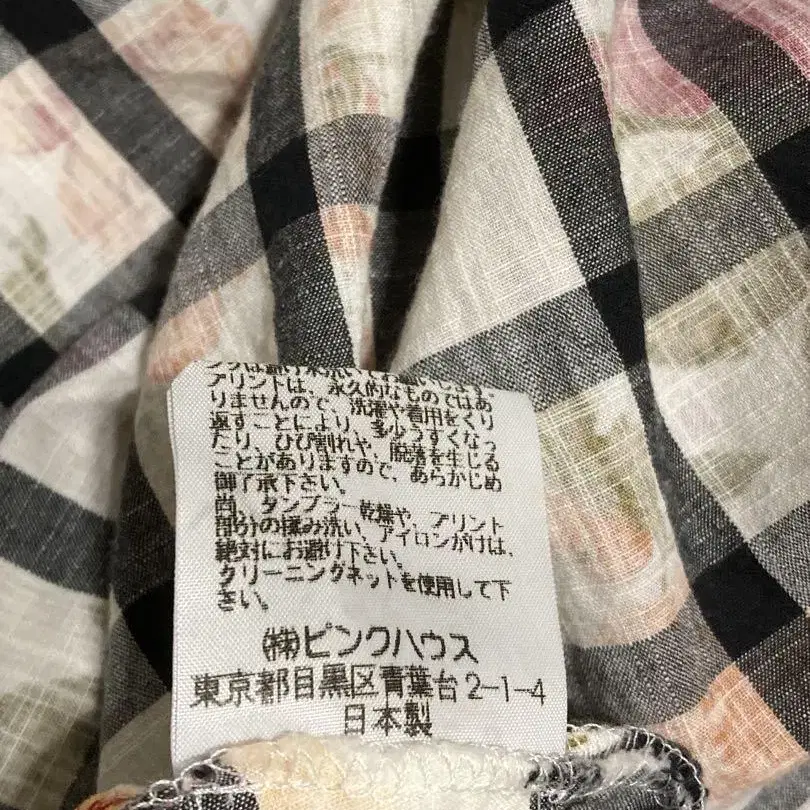 プリントは、永久的なものではあ
りませんので、洗濯や着用をくり
返すことにより、多少うすくなっ
たり、ひび割れや、脱落を生じる
ことがありますので、あらかじめ
御了承下さい。
尚、タンブラー乾燥や、プリント
部分の揉み洗い、アイロンがけは、
絶対にお避け下さい。
クリーニングネットを使用して下
さい。
㈱ピンクハウス
東京都目黒区青葉台2-1-4
日本製